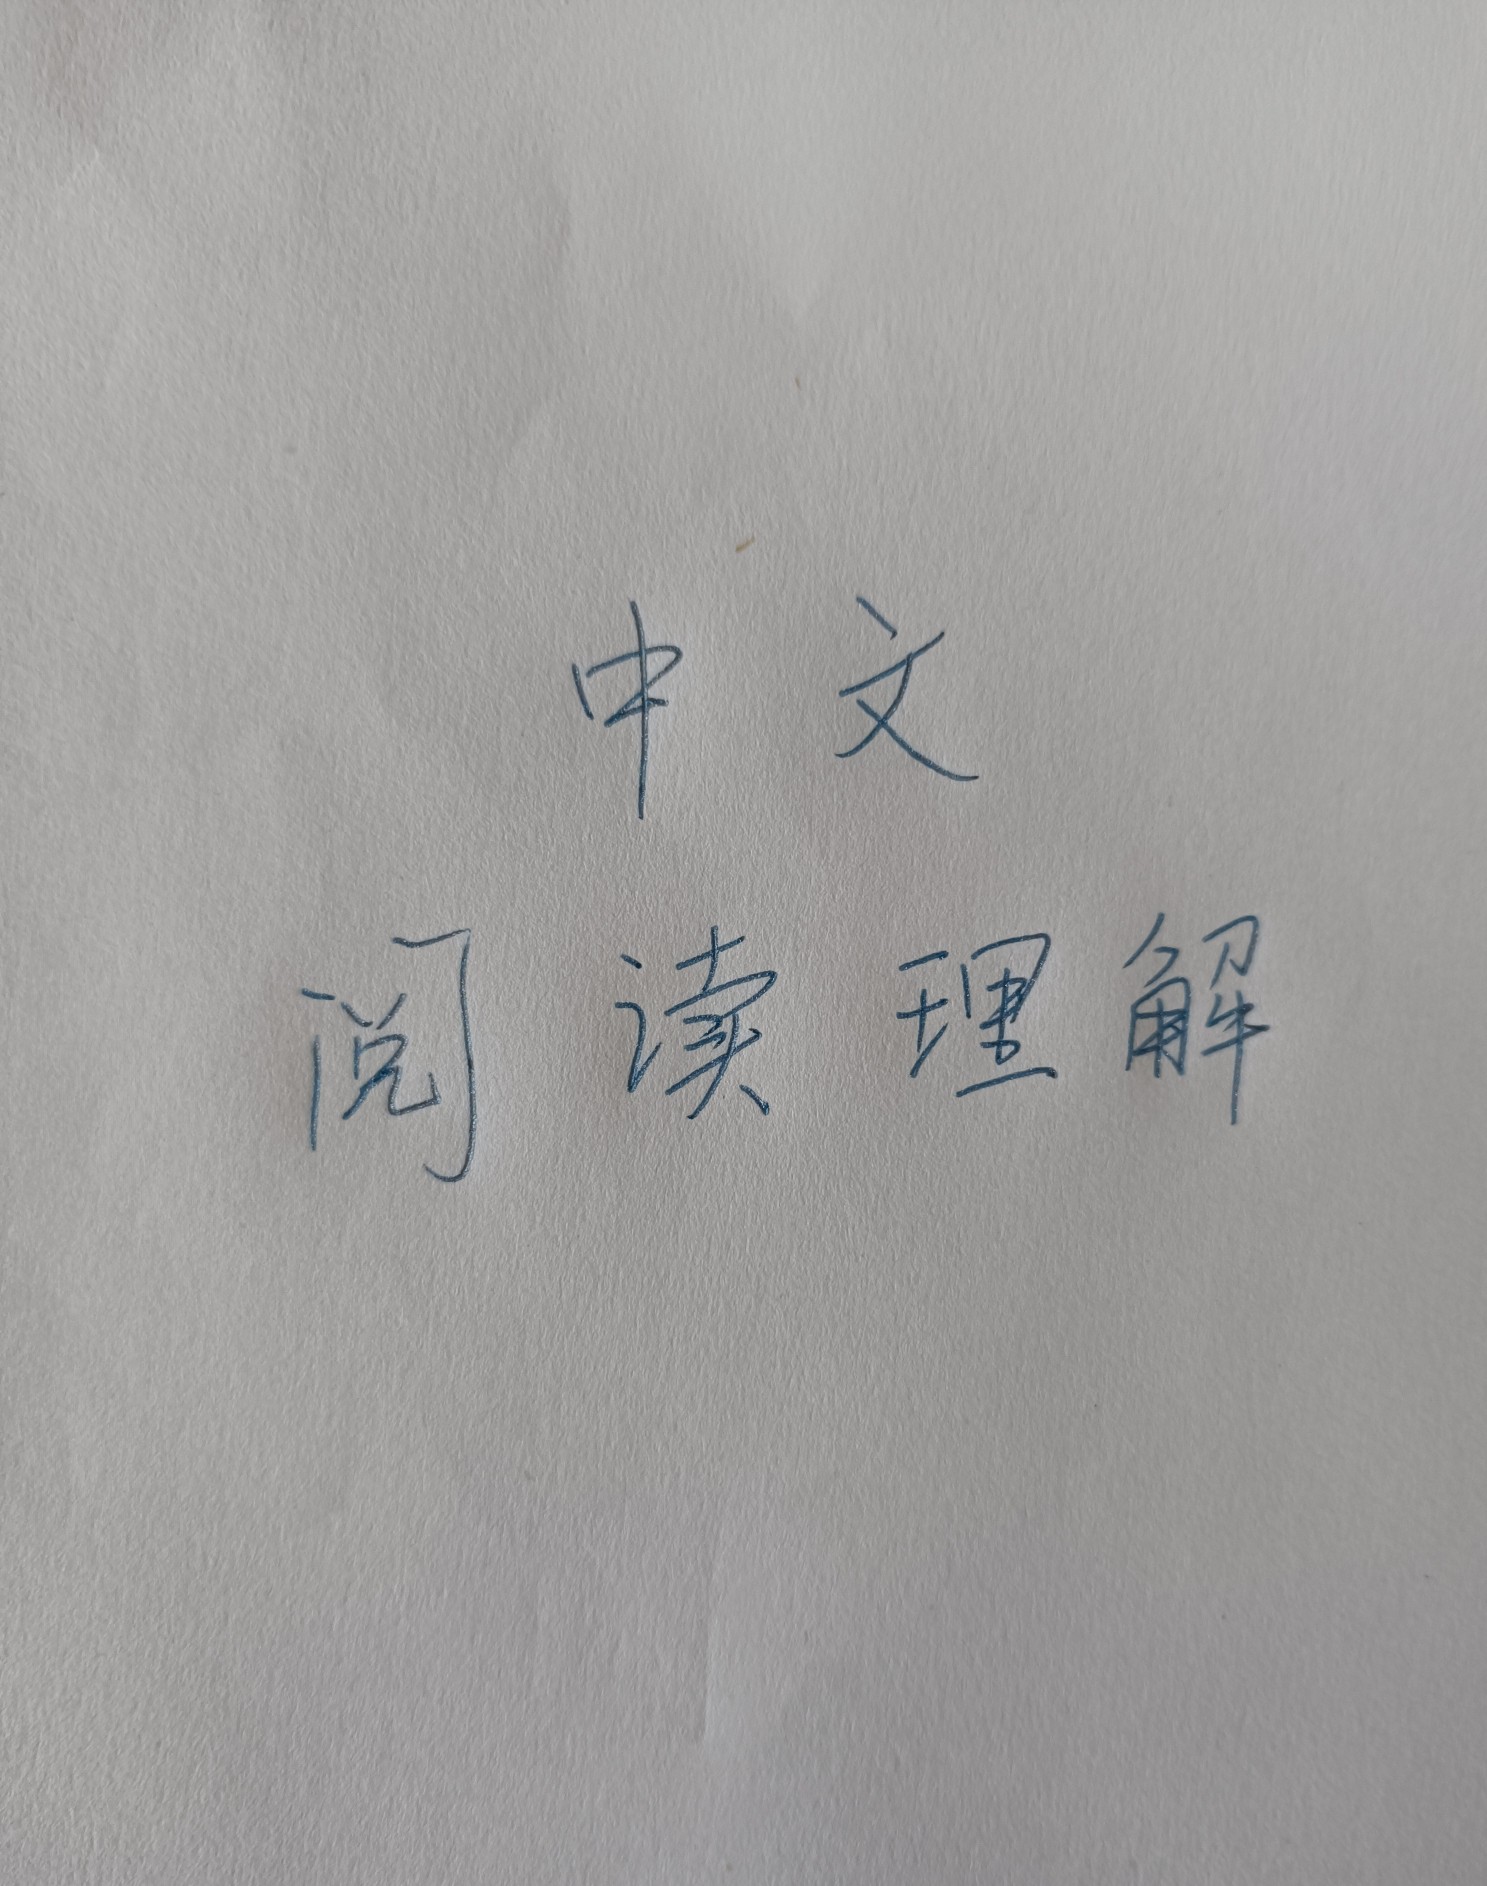 中文
阅读理解